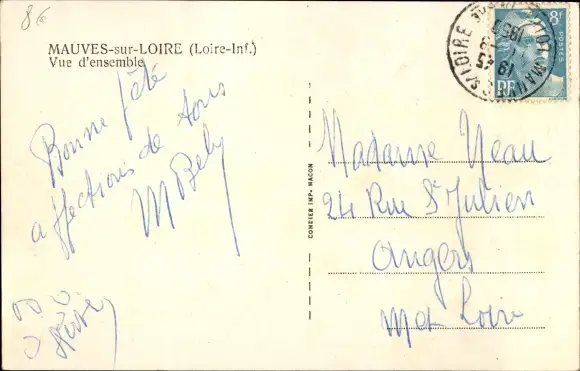 8€
MAUVES-sur-LOIRE (Loire-Inf.)
Vue d'ensemble
Bonne fête
affections de tous
M Beby
COMBIER IMP. MACON
8F
POSTES
RF
Madame Neau
24 Rue St Julien
Angers
M et Loire